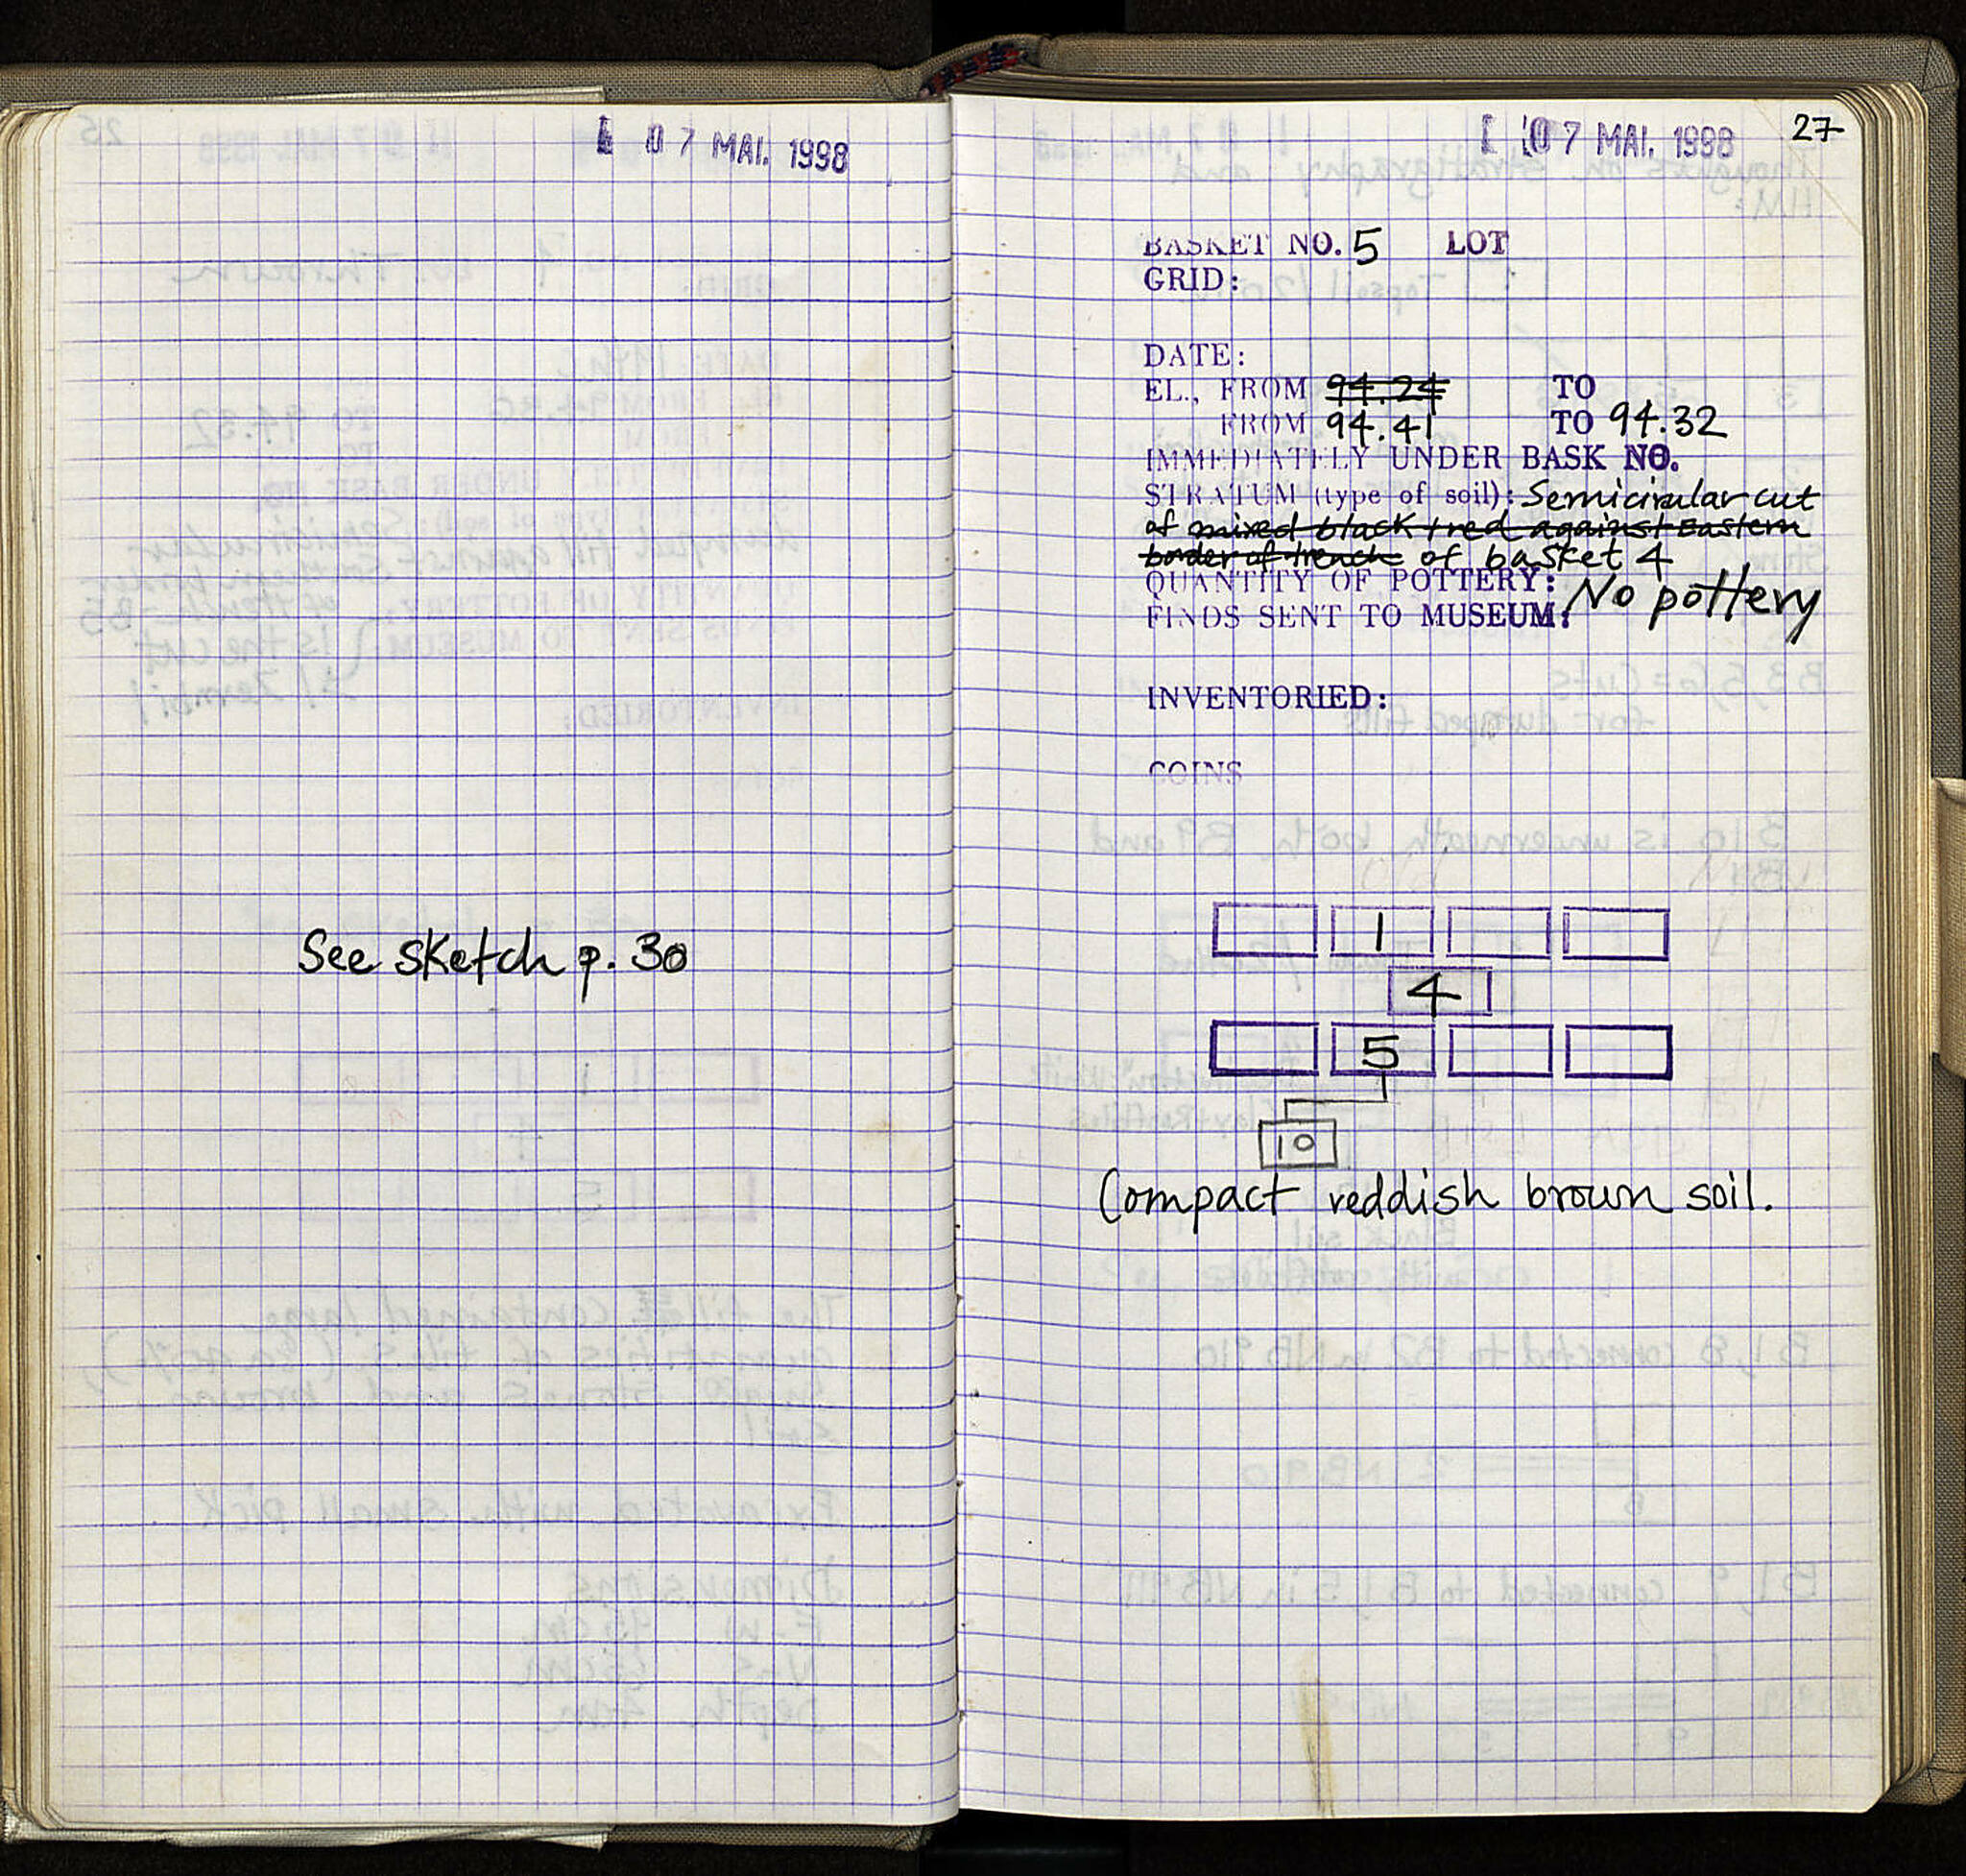 07 MAI. 1998
See sketch p. 30
07 MAI. 1998
27
BASKET NO. 5 LOT
GRID:
DATE:
EL., FROM 94.24 TO
FROM 94.41 TO 94.32
IMMEDIATELY UNDER BASK NO.
STRATUM (type of soil): Semicirular cut
of mixed black + red against Eastern
border of trench of basket 4
QUANTITY OF POTTERY: No pottery
FINDS SENT TO MUSEUM:
INVENTORIED:
COINS
1
4
5
10
Compact reddish brown soil.